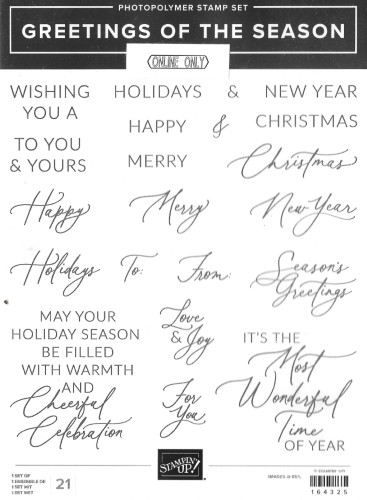 PHOTOPOLYMER STAMP SET
GREETINGS OF THE SEASON
ONLINE ONLY
WISHING
YOU A
HOLIDAYS & NEW YEAR
HAPPY & CHRISTMAS
TO YOU
& YOURS
MERRY
Christmas
Happy
Merry
New Year
Holidays
To:
From:
Season's
Greetings
MAY YOUR
HOLIDAY SEASON
BE FILLED
WITH WARMTH
AND
Cheerful
Celebration
Love
& Joy
For
You
IT'S THE
Most
Wonderful
Time
OF YEAR
1 SET OF
1 ENSEMBLE DE
1 SET MIT
1 SET MET
21
STAMPIN' UP!
IMAGES @ 85%
© STAMPIN' UP!
164325